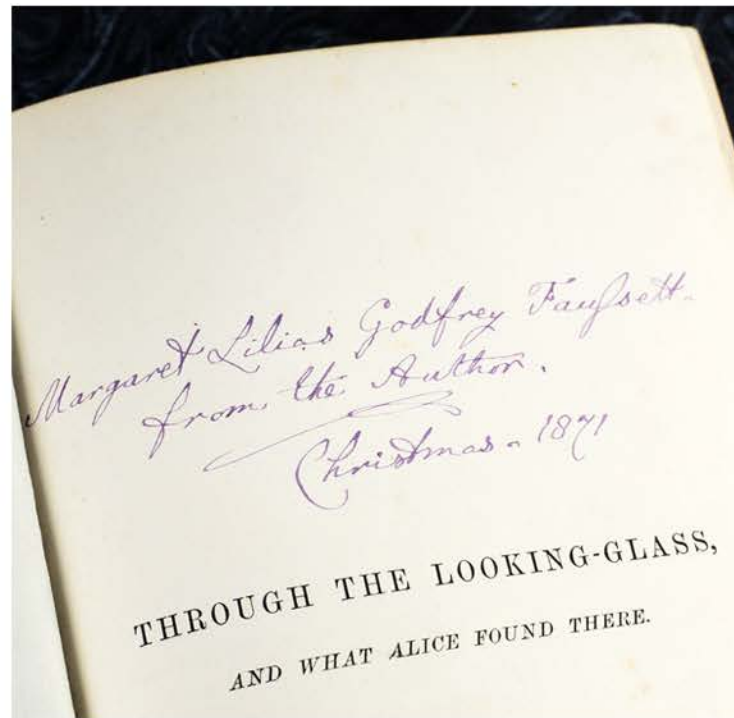 Margaret Lilias Godfrey Fauſsett.
from the Author.
Christmas - 1871
THROUGH THE LOOKING-GLASS,
AND WHAT ALICE FOUND THERE.